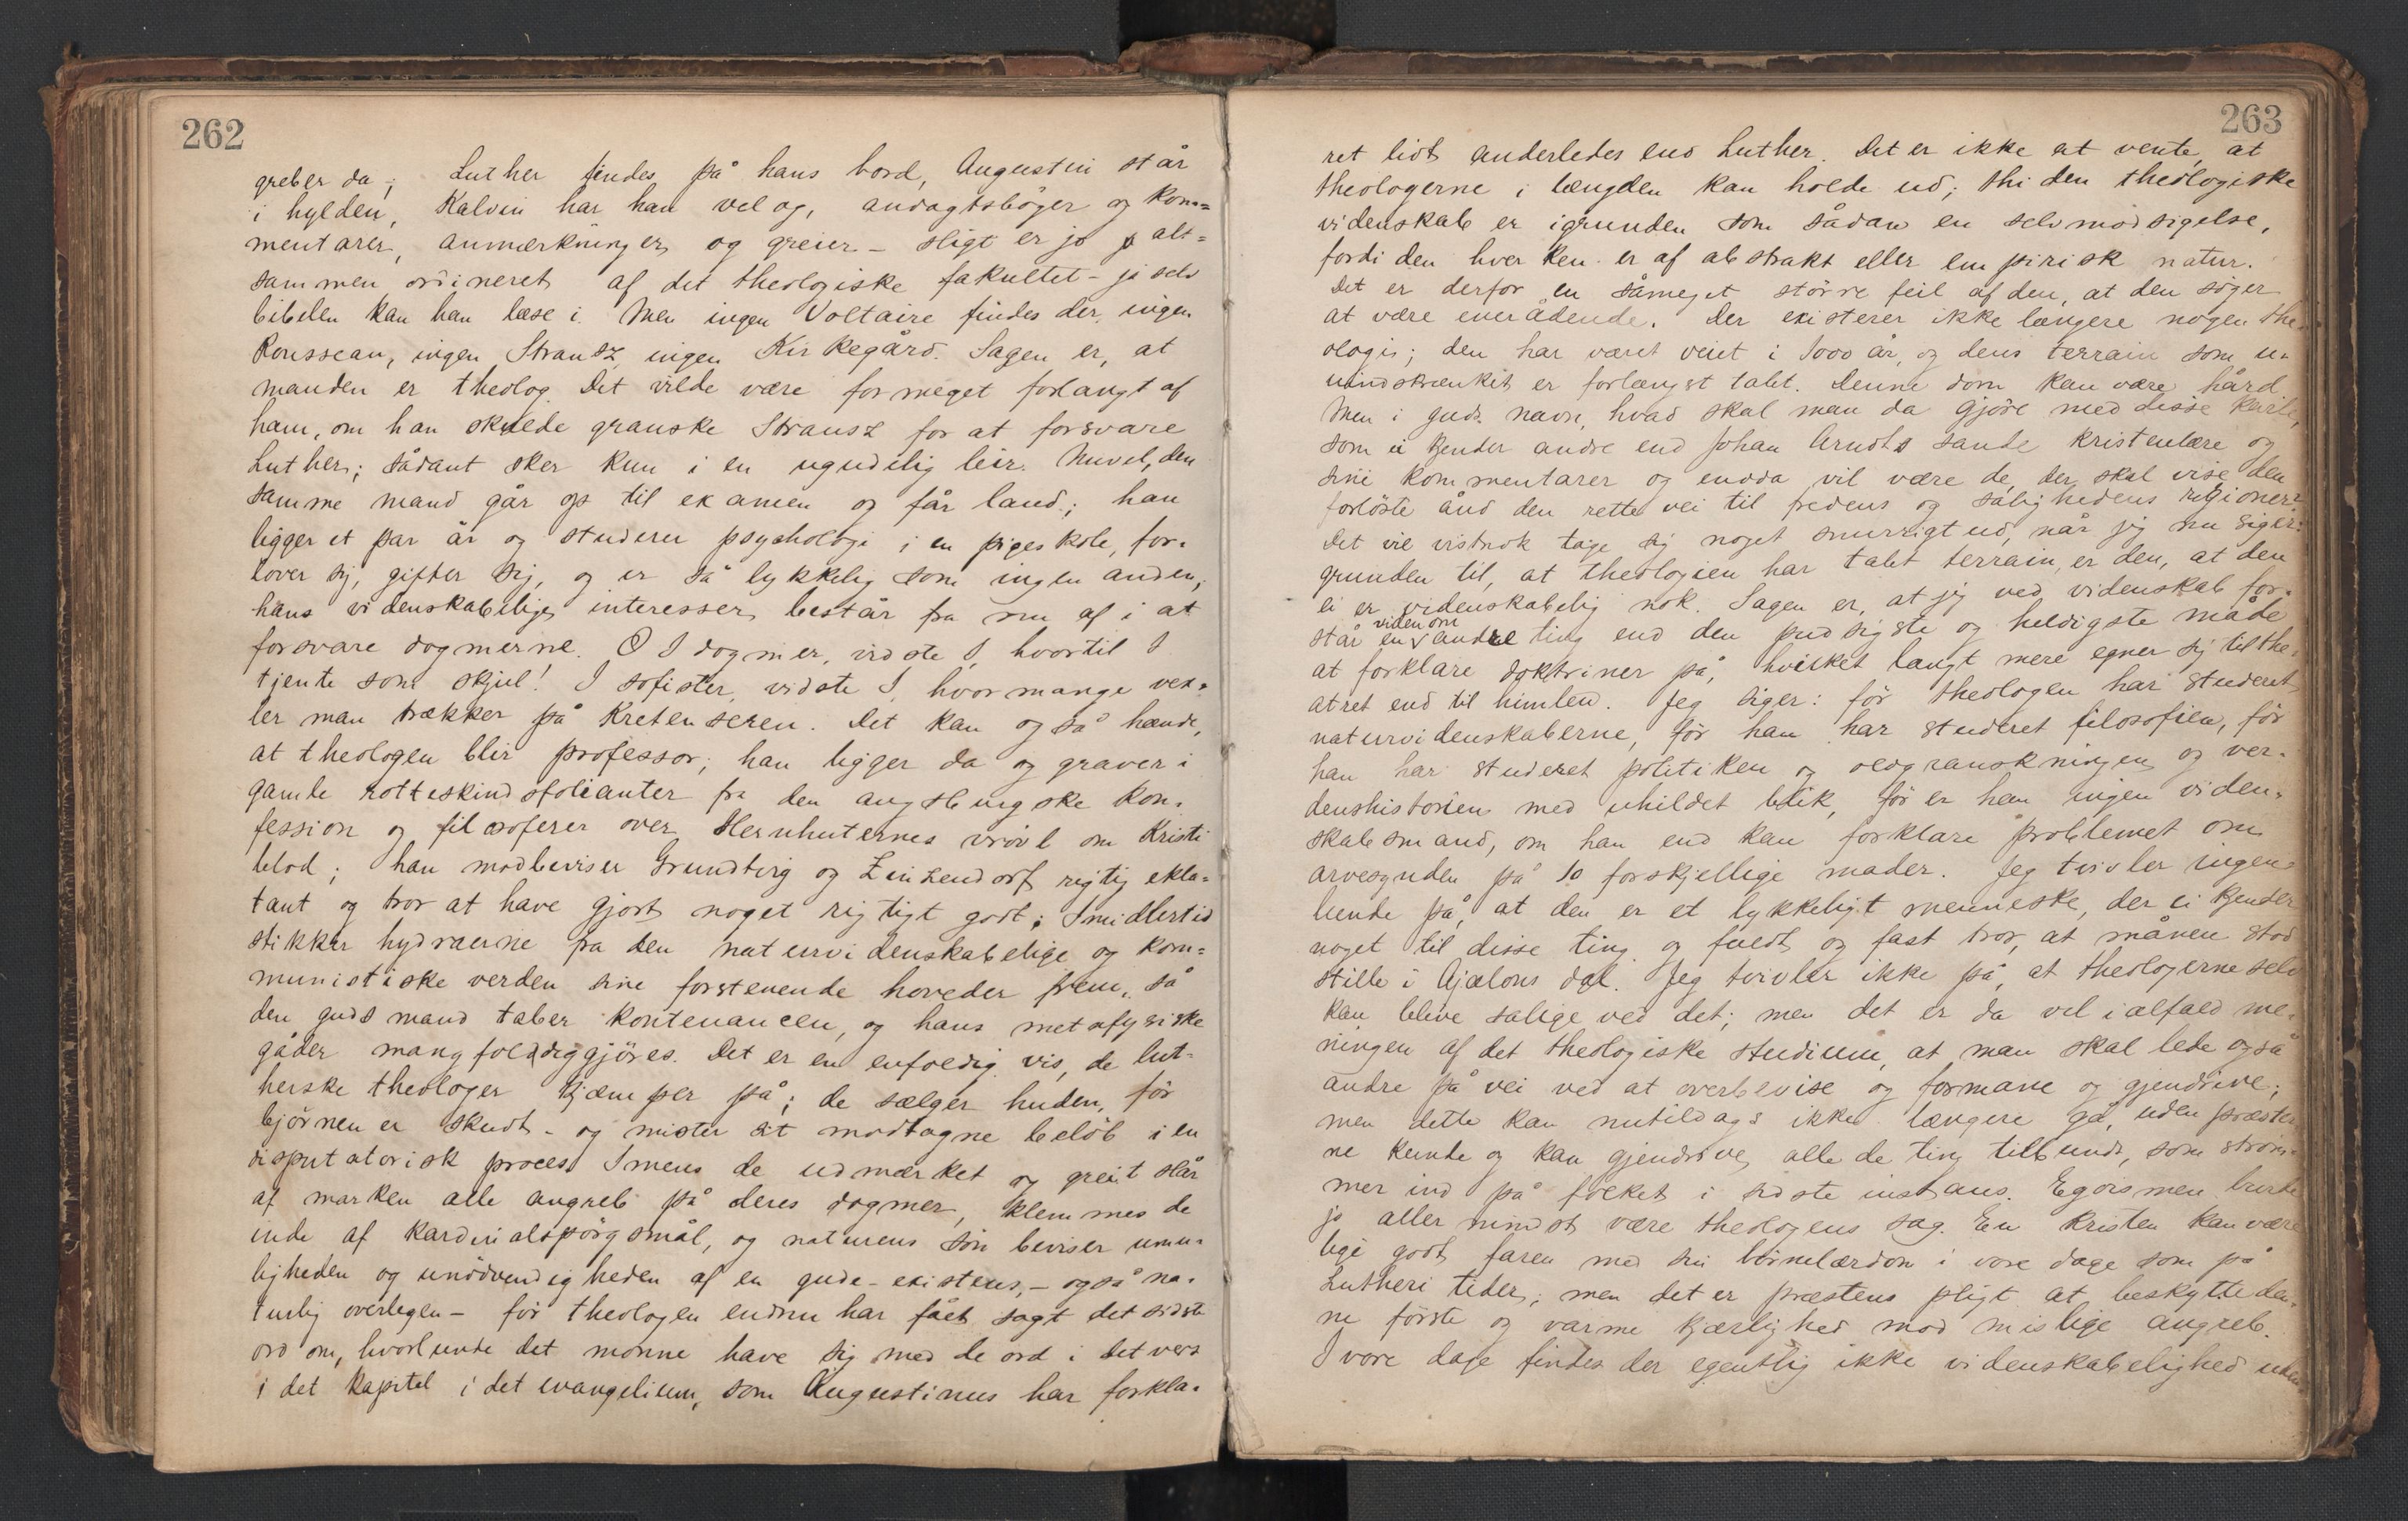 262
greber da; Luther findes på hans bord, Augustin står
i hylden, Kalvin har han vel og, andagtsbøger og kom=
mentarer, anmærkninger og greier - sligt er jo alt=
sammen ordineret af det theologiske fakultet - ja selv
bibelen kan han læse i. Men ingen Voltaire findes der, ingen
Rousseau, ingen Strausz, ingen Kirkegård. Sagen er, at
manden er theolog. Det vilde være formeget forlangt af
ham, om han skulde granske Strausz for at forsvare
Luther; sådant sker kun i en ugudelig leir. Nuvel, den
samme mand går op til examen og får laud.; han
ligger et par år og studerer psychologi i en pigeskole, for-
lover sig, gifter sig, og er så lykkelig som ingen anden;
hans videnskabelige interesser består fra nu af i at
forsvare dogmerne. O I dogmer, vidste I, hvortil I
tjente som skjul! I sofister, vidste I, hvor mange vex-
ler man trækker på Kretenseren. Det kan også hænde,
at theologen blir professor; han ligger da og graver i
gamle rotteskindsfolianter fra den augsburgske kon-
fession og filosoferer over Hernhuternes vrøvl om Kristi
blod; han modbeviser Grundtvig og Zinzendorf rigtig ekla-
tant og tror at have gjort noget rigtigt godt; Imidlertid
stikker hydraerne fra den naturvidenskabelige og kom=
munistiske verden sine forstenende hoveder frem, så
den guds mand taber kontenancen, og hans metafysiske
gåder mangfoldiggjøres. Det er en enfoldig vis, de lut-
herske theologer kjæmper på; de sælger huden, før
bjørnen er skudt - og mister sit modtagne beløb i en
disputatorisk proces. Imens de udmærket og greit slår
af marken alle angreb på deres dogmer, klemmes de
inde af kardinalspørgsmål, og naturens søn beviser umu-
ligheden og unødvendigheden af en guds-existens, - også na-
turlig overlegen - før theologen endnu har fået sagt det sidste
ord om, hvorlunde det monne have sig med de ord i det vers
i det kapitel i det evangelium, som Augustinus har forkla-
263
ret lidt anderledes end Luther. Det er ikke at vente, at
theologerne i længden kan holde ud; thi den theologiske
videnskab er igrunden som sådan en selvmodsigelse,
fordi den hverken er af abstrakt eller empirisk natur.
Det er derfor en såmeget større feil af den, at den søger
at være enerådende. Der existerer ikke længere nogen the-
ologi; den har været veiet i 1000 år, og dens terrain som u-
uindskrænket er forlængst tabt. Denne dom kan være hård.
Men i guds navn, hvad skal man da gjøre med disse karle,
som ei kjender andre end Johan Arndts sande kristenlære og
sine kommentarer og endda vil være de, der skal vise den
forløste ånd den rette vei til fredens og salighedens regioner?
Det vil vistnok tage sig noget snurrigt ud, når jeg nu siger:
grunden til, at theologien har tabt terrain, er den, at den
ei er videnskabelig nok. Sagen er, at jeg ved videnskab for-
står en viden om andre ting end den pudsigste og heldigste måde
at forklare doktriner på, hvilket langt mere egner sig til the-
atret end til himlen. Jeg siger: før theologen har studeret
naturvidenskaberne, før han har studeret filosofien, før
han har studeret politiken og oldgranskningen og ver-
denshistorien med uhildet blik, før er han ingen viden-
skabsmand, om han end kan forklare problemet om
arvesynden på 10 forskjellige måder. Jeg tvivler ingen-
lunde på, at den er et lykkeligt menneske, der ei kjender
noget til disse ting og fuldt og fast tror, at månen stod
stille i Ajalons dal. Jeg tvivler ikke på, at theologerne selv
kan blive salige ved det; men det er da vel ialfald me-
ningen af det theologiske studium, at man skal lede også
andre på vei ved at overbevise og formane og gjendrive;
men dette kan nutildags ikke længere gå, uden præster-
ne kunde og kan gjendrive alle de ting tilbunds, som strøm-
mer ind på folket i sidste instans. Egoismen burde
jo allermindst være theologens sag. En kristen kan være
lige godt faren med sin børnelærdom i vore dage som på
Lutheri tider; men det er præstens pligt at beskytte den-
ne første og varme kjærlighed mod mislige angreb.
I vore dage findes der egentlig ikke videnskabelighed uden-